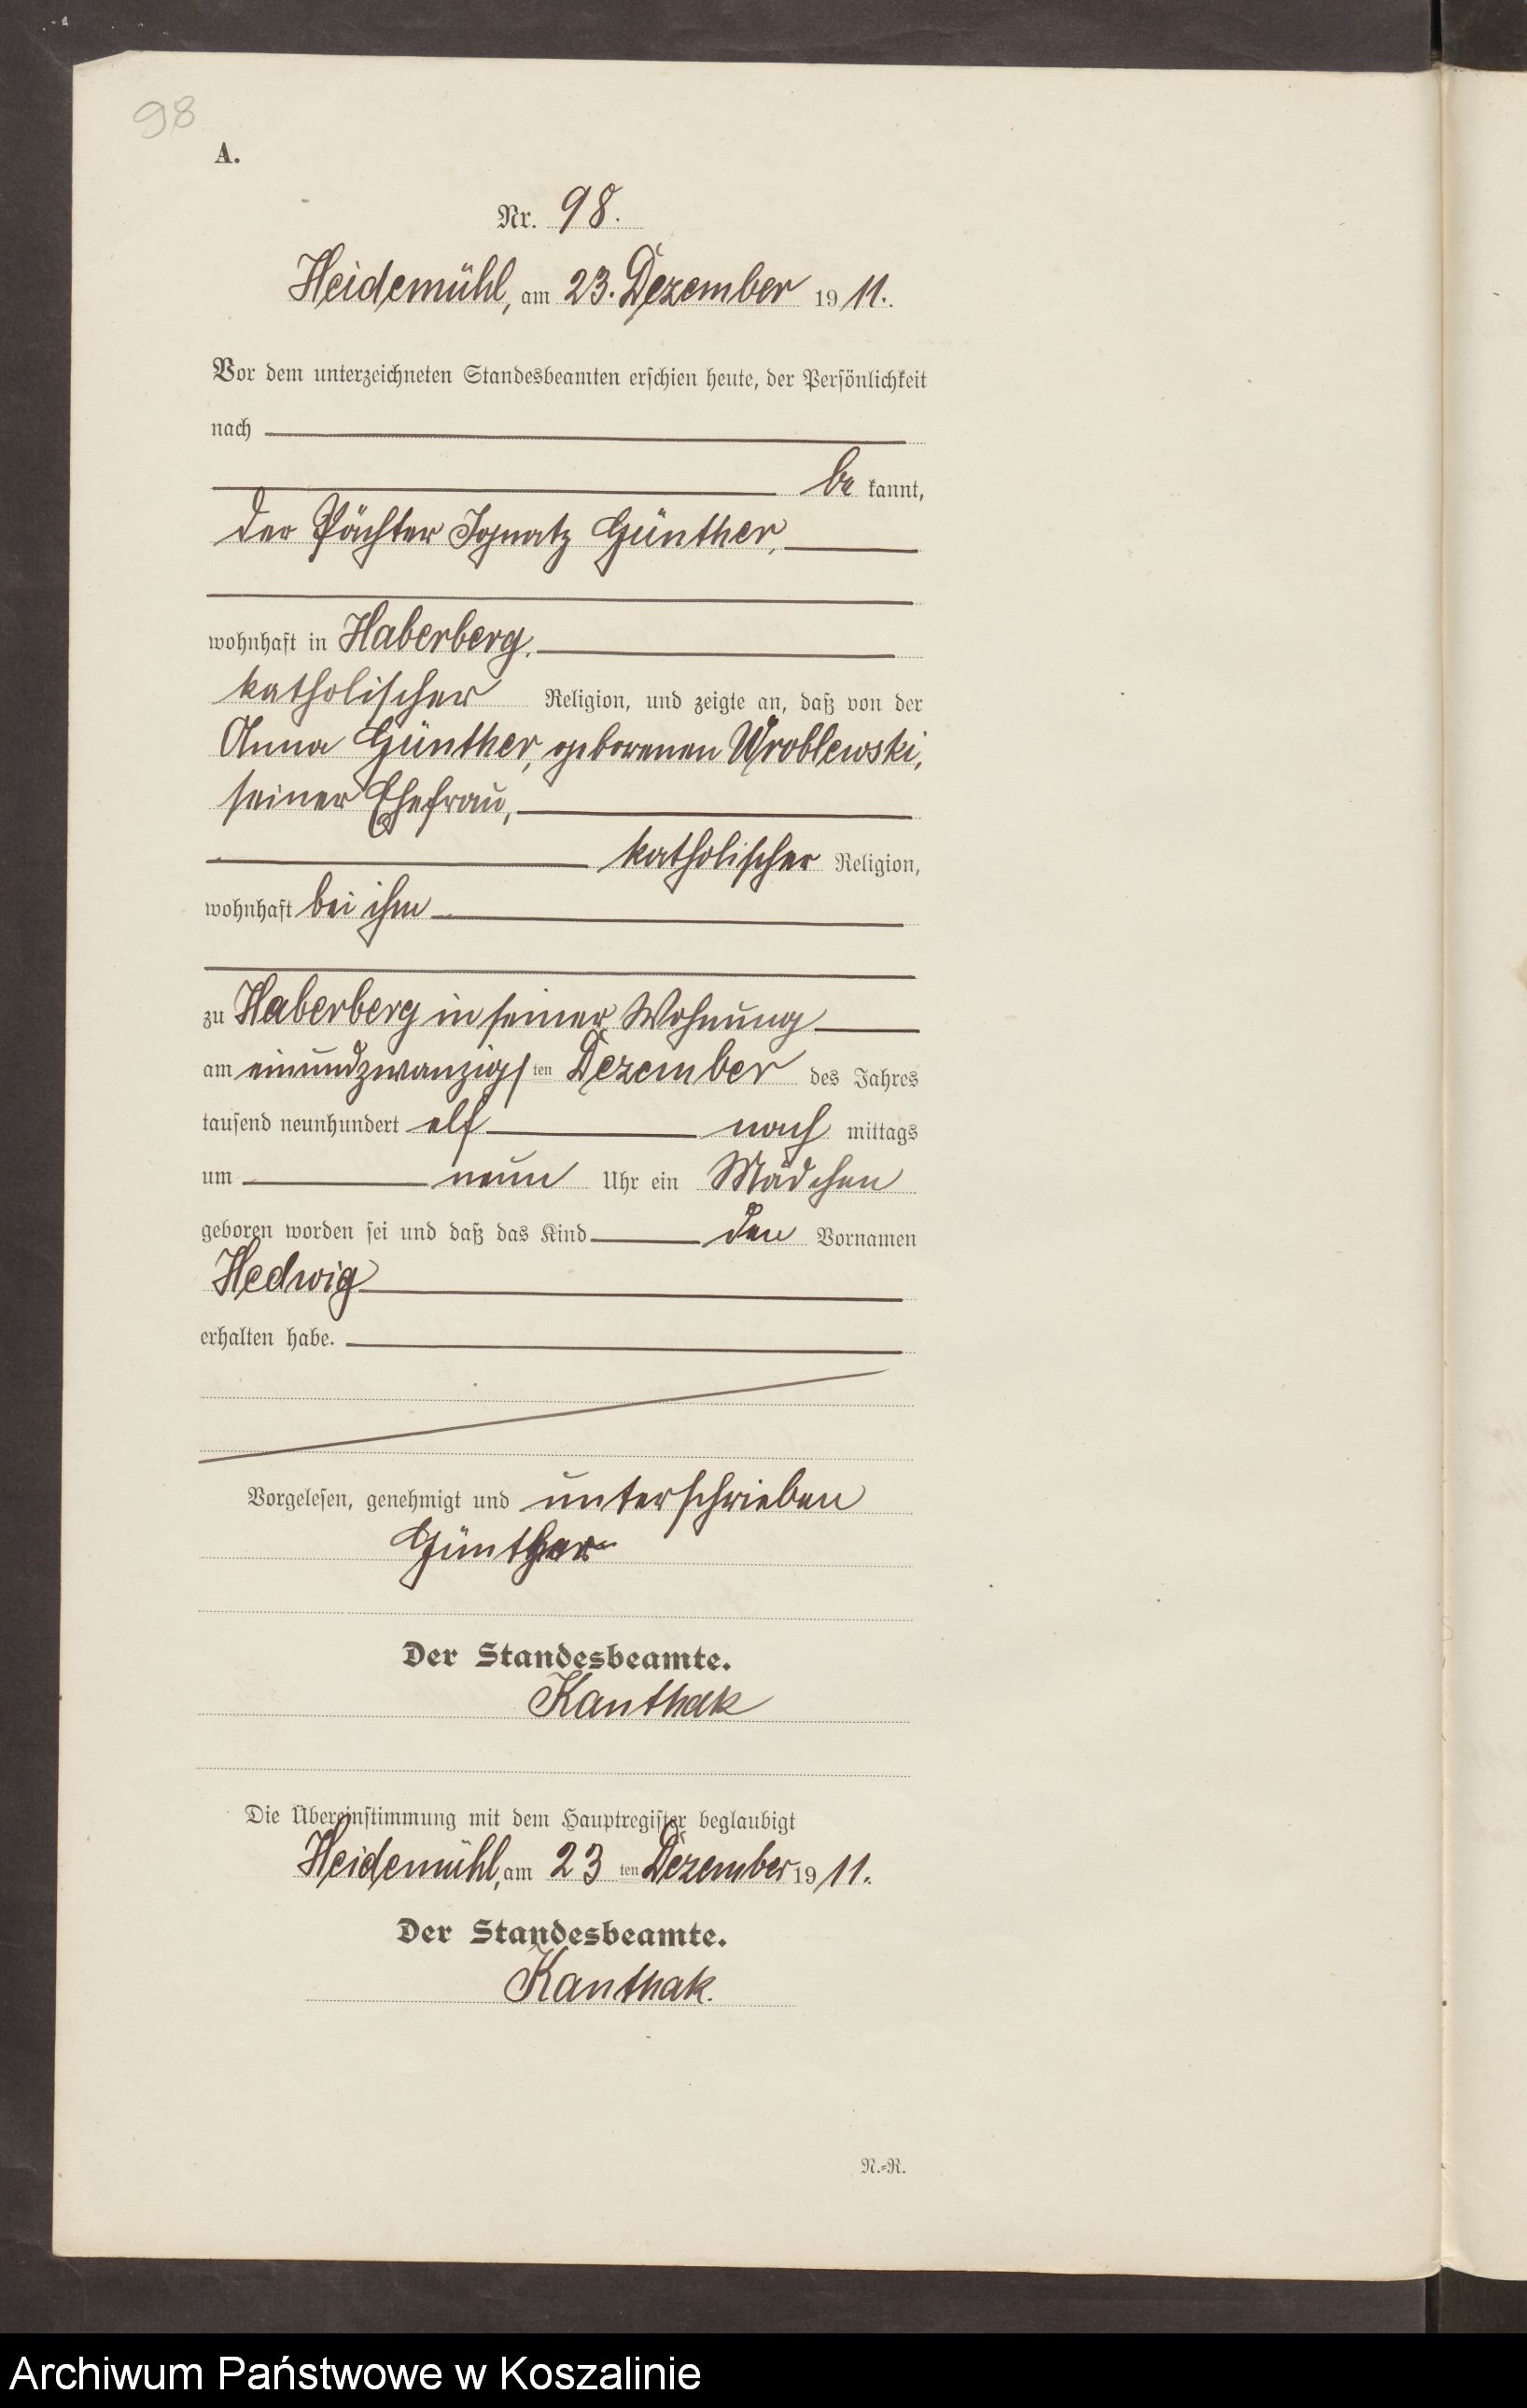 98
A.
Nr. 98.
Heidemühl, am 23. Dezember 1911.
Vor dem unterzeichneten Standesbeamten erschien heute, der Persönlichkeit
nach
be kannt,
der Pächter Ignatz Günther,
wohnhaft in Haberberg,
katholischer Religion, und zeigte an, daß von der
Anna Günther, geborenen Wroblewski,
seiner Ehefrau,
katholischer Religion,
wohnhaft bei ihm
zu Haberberg in seiner Wohnung
am einundzwanzigsten Dezember des Jahres
tausend neunhundert elf nach mittags
um neun Uhr ein Mädchen
geboren worden sei und daß das Kind den Vornamen
Hedwig
erhalten habe.
Vorgelesen, genehmigt und unterschrieben
Günther
Der Standesbeamte.
Kanthak
Die Übereinstimmung mit dem Hauptregister beglaubigt
Heidemühl, am 23 ten Dezember 1911.
Der Standesbeamte.
Kanthak.
N.=R.
Archiwum Państwowe w Koszalinie